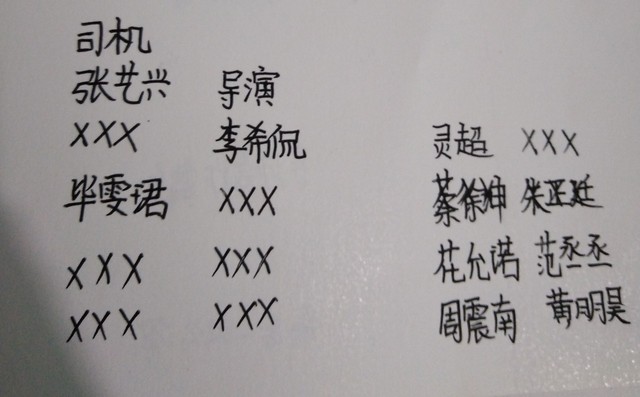 司机
张艺兴 导演
XXX 李希侃 灵超 XXX
毕雯珺 XXX 蔡徐坤 朱正廷
XXX XXX 花允诺 范丞丞
XXX XXX 周震南 黄明昊